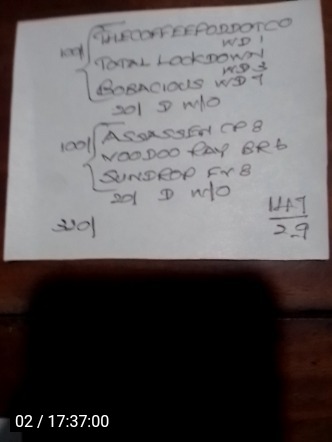 100/ THECOFFEEPODDOTCO
WD 1
TOTAL LOCKDOWN
WD 3
BOBACIOUS WD 7
20/ D W/O
100/ ASSASSEN CP 8
VOODOO RAY BR 6
SUNDROP FY 8
20/ D W/O
320/
1147
2.9
02 / 17:37:00